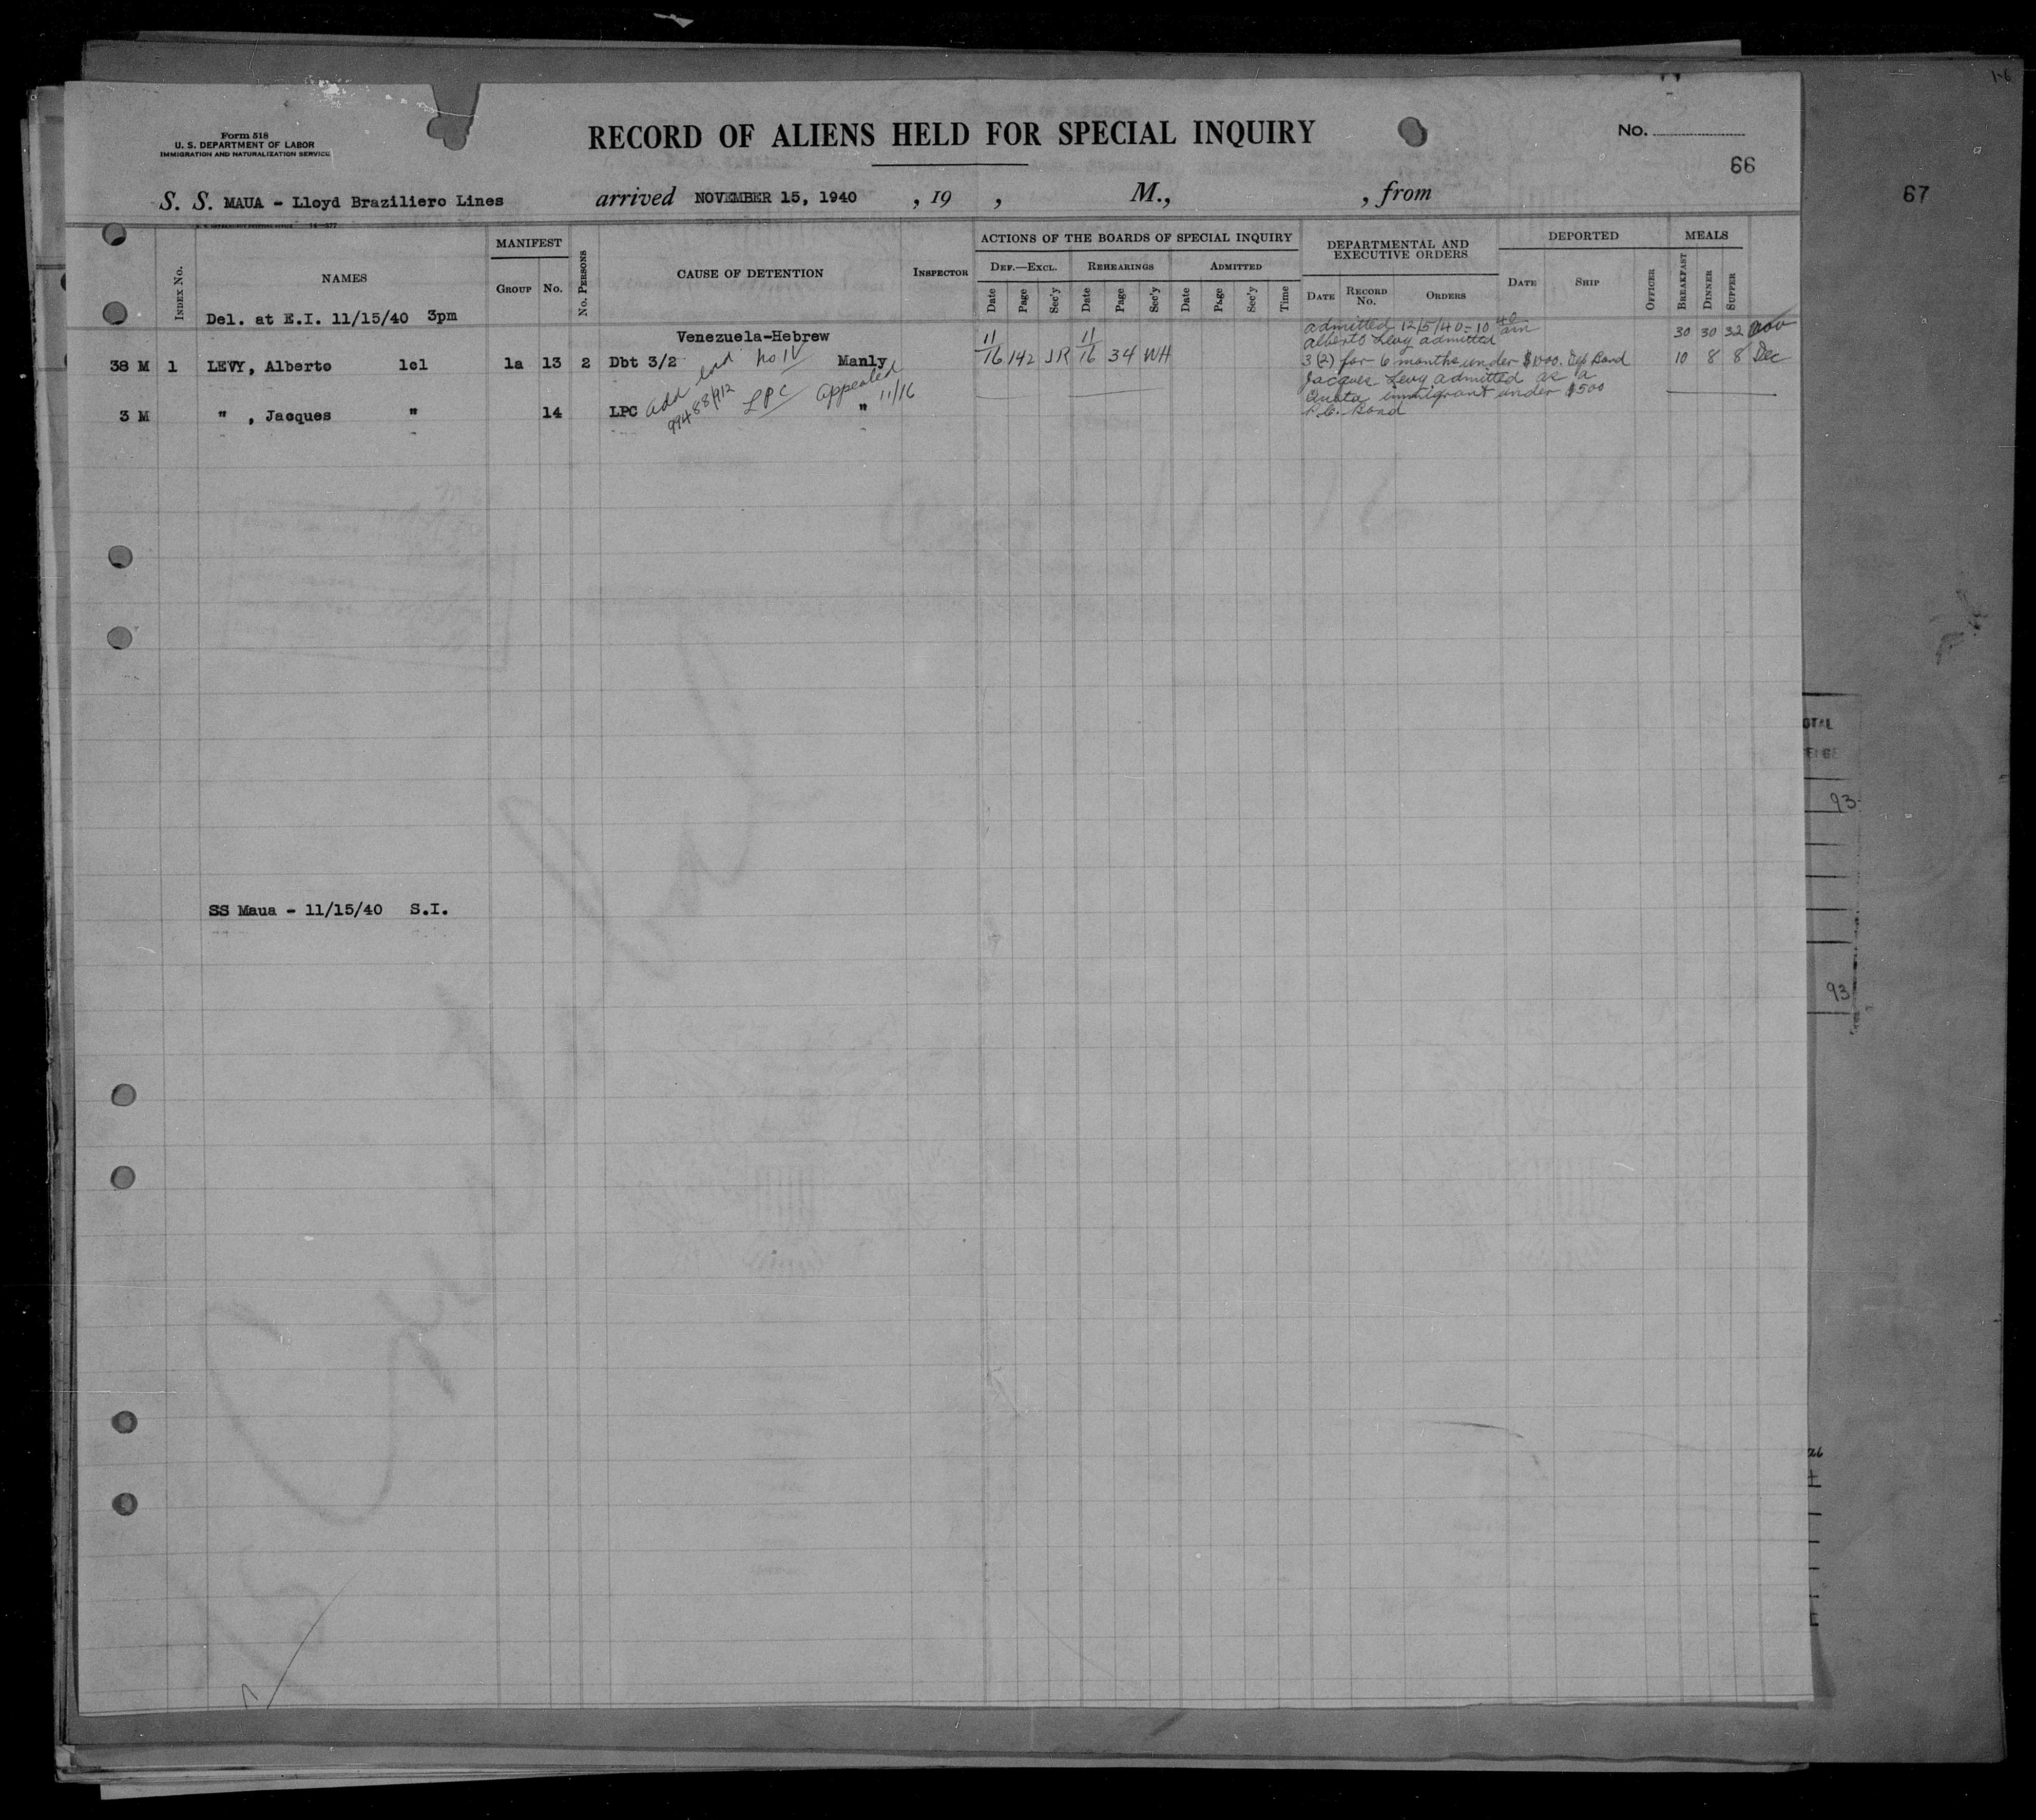 1-6
Form 518
U. S. DEPARTMENT OF LABOR
IMMIGRATION AND NATURALIZATION SERVICE
RECORD OF ALIENS HELD FOR SPECIAL INQUIRY
No.
66
67
S. S. MAUA - Lloyd Braziliero Lines arrived NOVEMBER 15, 1940 , 19 , M., , from
INDEX No.
NAMES
MANIFEST
GROUP No.
No. PERSONS
CAUSE OF DETENTION
INSPECTOR
ACTIONS OF THE BOARDS OF SPECIAL INQUIRY
DEF.—EXCL. REHEARINGS ADMITTED
Date Page Sec'y Date Page Sec'y Date Page Sec'y Time
DEPARTMENTAL AND
EXECUTIVE ORDERS
DATE RECORD No. ORDERS
DEPORTED
DATE SHIP OFFICER
MEALS
BREAKFAST DINNER SUPPER
Del. at E.I. 11/15/40 3pm
Venezuela-Hebrew
admitted 12/5/40 - 10 40 am
Alberto Levy admitted
30 30 32 Nov
38 M 1 LEVY, Alberto 1cl 1a 13 2 Dbt 3/2 no IV Manly 11/16 142 JR 11/16 34 WH 3(2) for 6 months under $1000. Dep Bond 10 8 8 Dec
Add end
LPC
Appealed
11/16
99488/912
Jacques Levy admitted as a
Quota immigrant under $500
P.C. Bond
3 M " , Jacques " 14 LPC "
OTAL
93
SS Maua - 11/15/40 S.I.
93